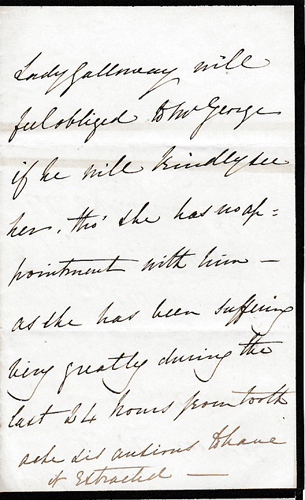 Lady Galloway will
feel obliged to Mr George
if he will kindly see
her, tho' she has no ap=
pointment with him —
as she has been suffering
very greatly during the
last 24 hours from tooth
ache & is anxious to have
it Extracted —